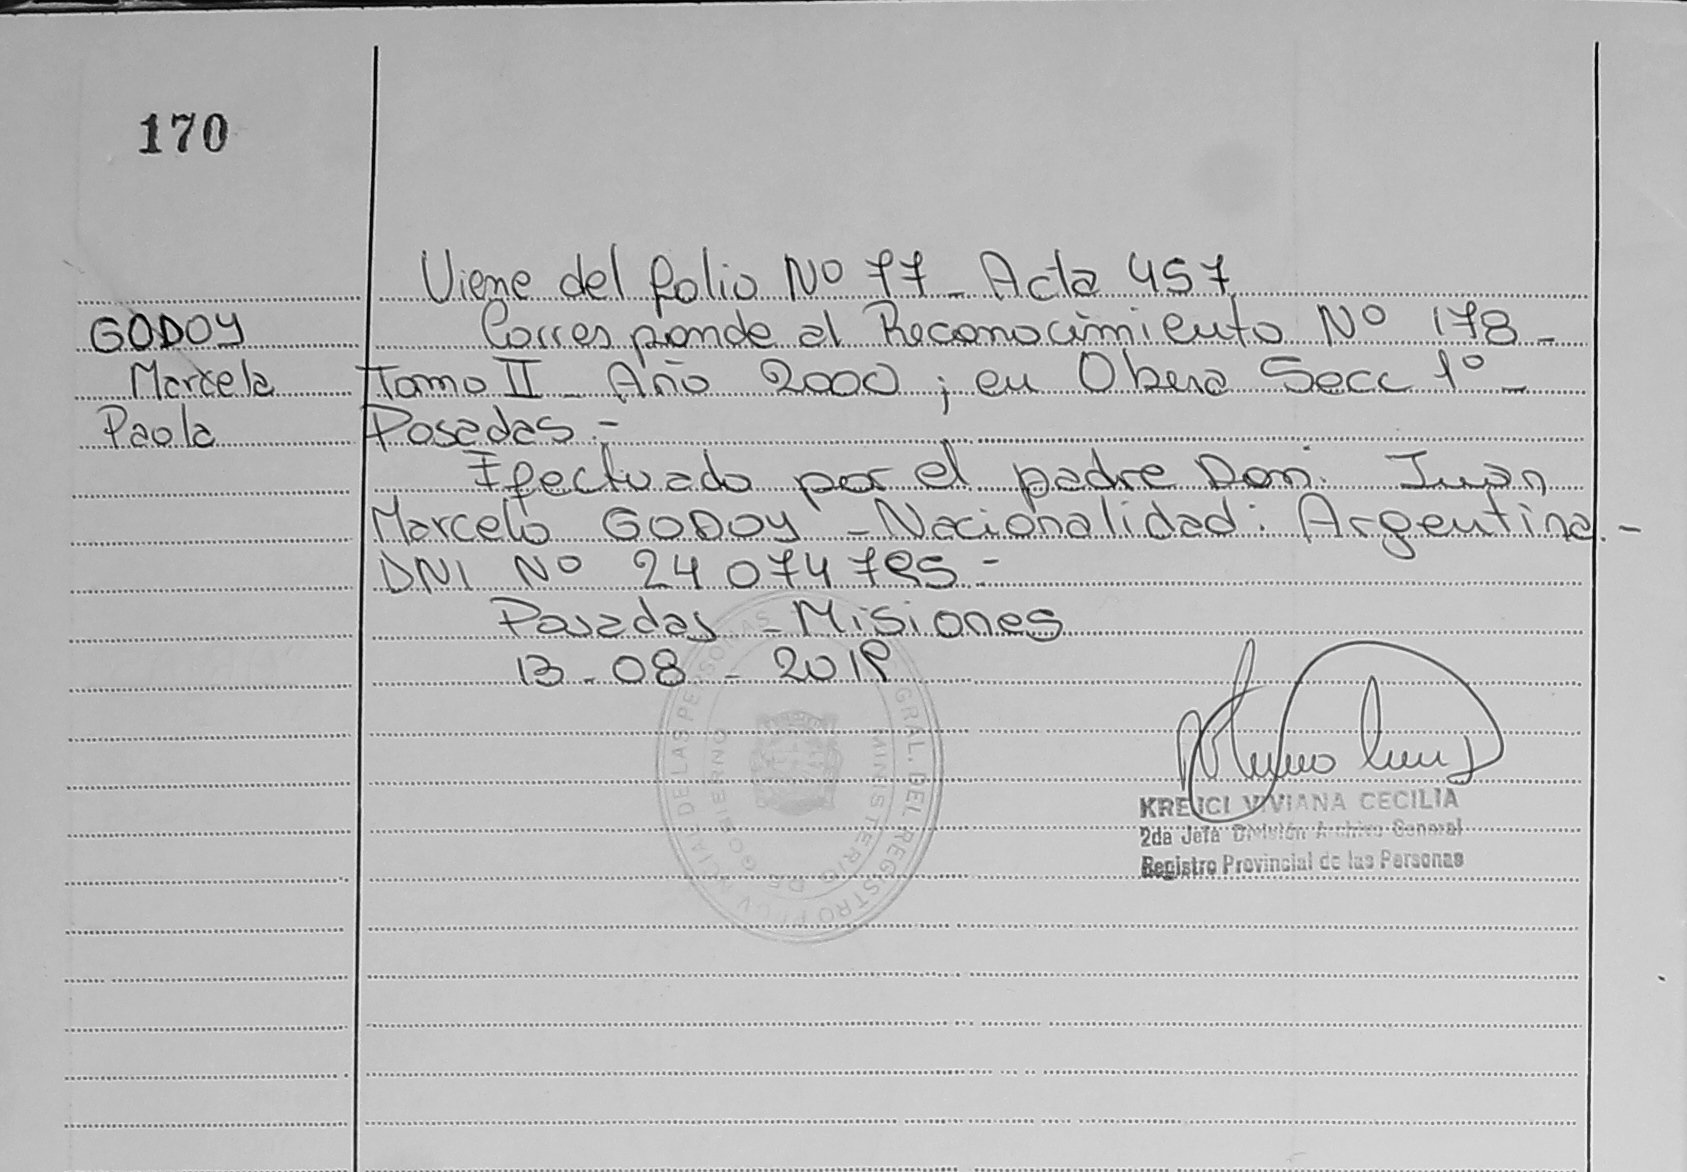 170
Viene del folio Nº 77_ Acta 457
GODOY
Corresponde al Reconocimiento Nº 178_
Marcela
Tomo II_ Año 2000; en Obera Secc 1º_
Paola
Posadas.-
Efectuado por el padre Don: Juan
Marcelo GODOY _Nacionalidad: Argentina.-
DNI Nº
Posadas _ Misiones
13-08-
KREJCI VIVIANA CECILIA
2da Jefa División Archivo General
Registro Provincial de las Personas
GRAL. DEL REGISTRO PROVINCIAL DE LAS PERSONAS
MINISTERIO DE GOBIERNO